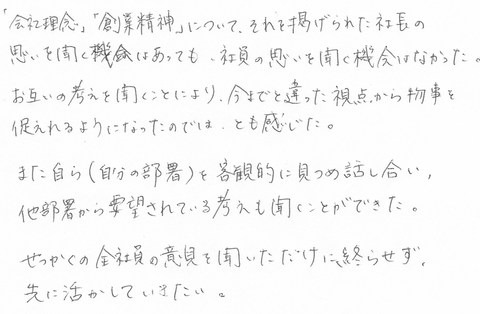 「会社理念」「創業精神」について、それを掲げられた社長の
思いを聞く機会はあっても、社員の思いを聞く機会はなかった。
お互いの考えを聞くことにより、今までと違った視点から物事を
捉えれるようになったのでは、とも感じた。
また自ら(自分の部署)を客観的に見つめ話し合い、
他部署から要望されている考えも聞くことができた。
せっかくの全社員の意見を聞いただけに終らせず、
先に活かしていきたい。